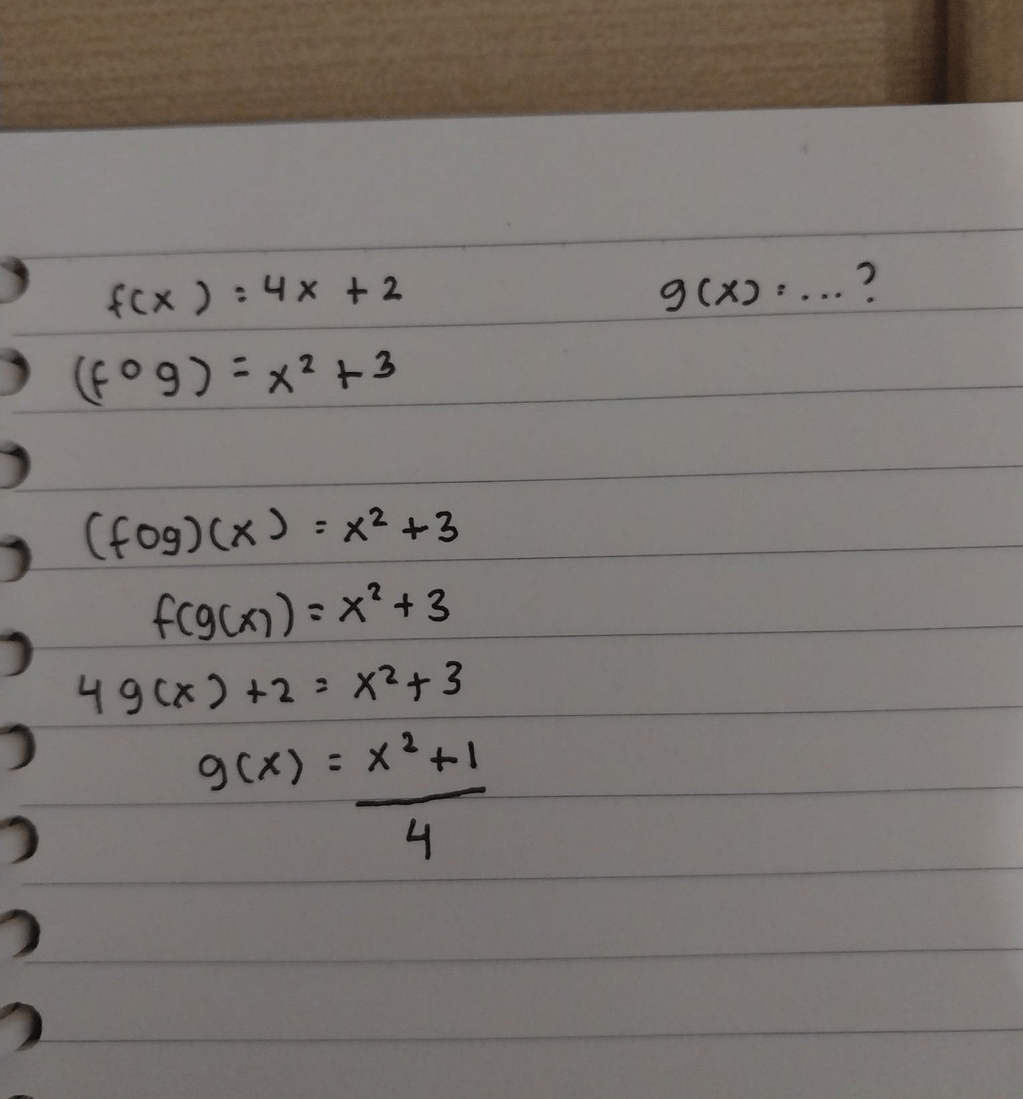 f(x) = 4x + 2 g(x) = ...?
(f o g) = x² + 3
(fog)(x) = x² + 3
f(g(x)) = x² + 3
4 g(x) + 2 = x² + 3
g(x) = x² + 1
4